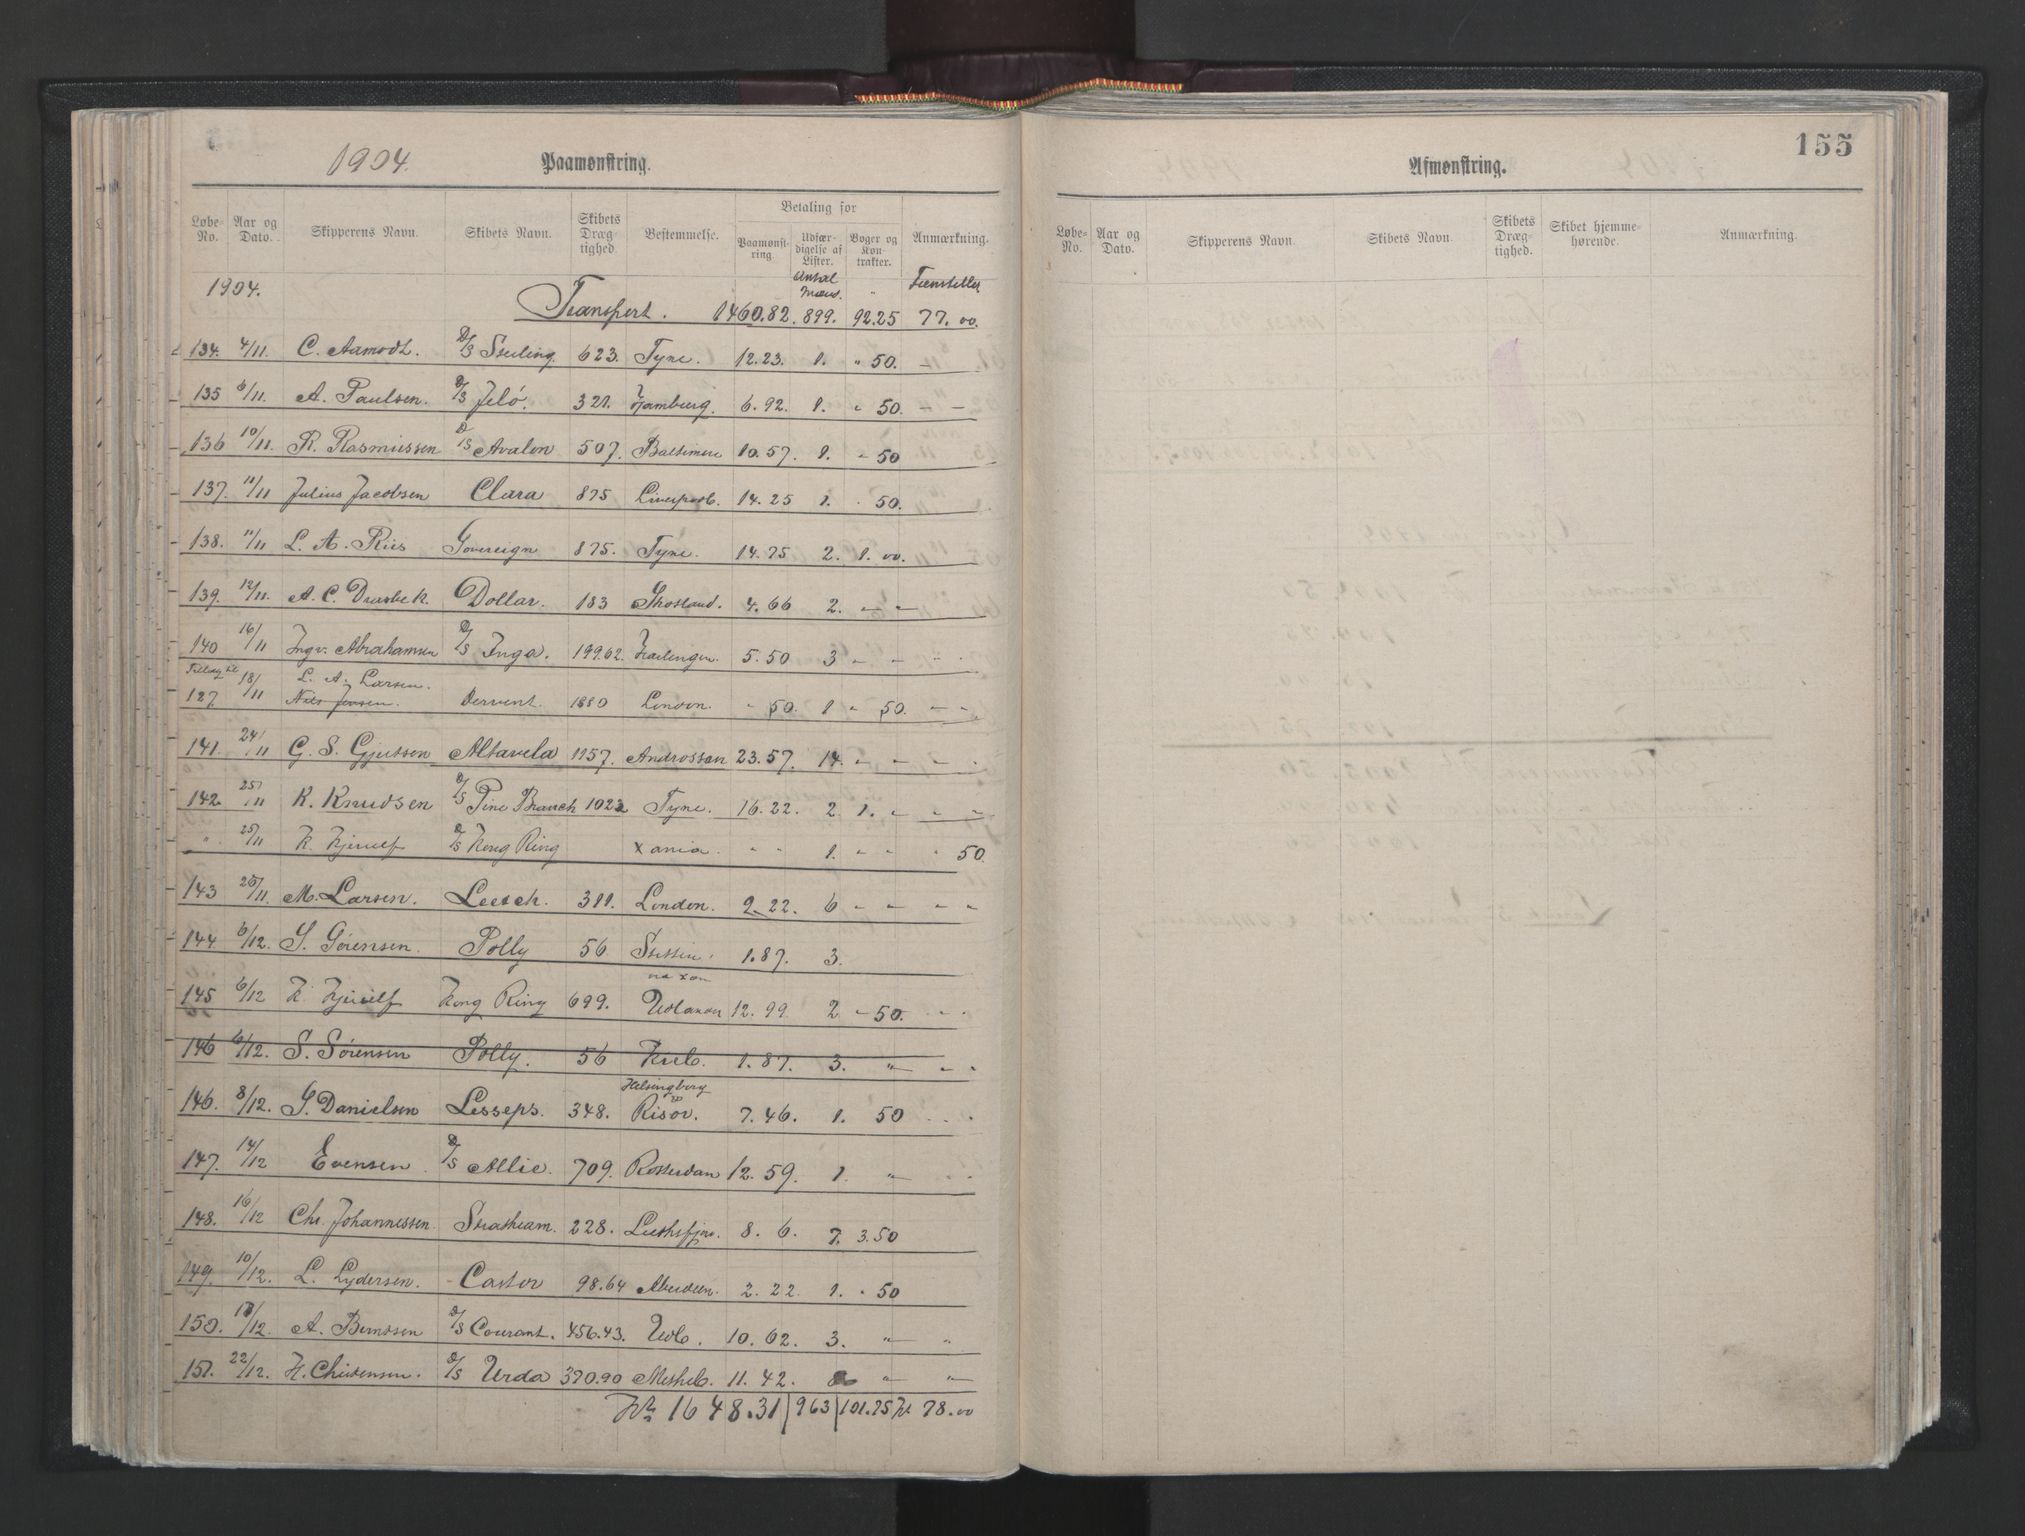 1904.
Paamønstring.
Løbe-No.
Aar og Dato.
Skipperens Navn.
Skibets Navn.
Skibets Dræg-tighed.
Bestemmelse.
Betaling for
Paamønst-ring.
Udfær-digelse af Lister.
Bøger og Kon trakter.
Anmærkning.
1904. Antal
Transport. 1460.82. 899. 92.25 77.00.
134. 4/11. C. Aamodt. D/S Sterling. 623. Tyne. 12.23. 1. " 50. —
135 6/11. A. Paulsen. D/S Jelø. 321. Hamburg. 6.92. 1. " 50. — —
136 10/11. R. Rasmussen D/S Avalon 507. Baltimore 10.57. 1. " 50
137. 11/11 Julius Jacobsen Clara 875 Liverpool. 14.25 1. . 50.
138. 11/11 L. A. Riis Sovereign 875. Tyne. 14.75 2. 1.00.
139. 12/11. A. C. Drasbek. Dollar. 183 Skotland. 4.66 2. " "
140 16/11 Ingv. Abrahamsen D/S Inga. 199.62. Harlingen. 5.50 3 " " " "
Tillæg til 18/11 L. A. Larsen.
127 Nils Jensen. Dervent. 1180 London. " 50. 1 " 50. " "
141. 24/11 G. S. Gjutsen Altavela 1157. Androssan 23.57. 14. " " " "
142. 25/11 K. Knudsen D/S Pine Branch 1022 Tyne. 16.22. 2. 1. " " "
" 25/11 H. Hjerulf D/S Kong Ring Xania. " " 1. " " " 50.
143 26/11. M. Larsen. Leesch. 311. London. 9.22. 6 " " " "
144 6/12. S. Sørensen. Polly 56 Stettin. 1.87. 3.
via Xan
145 6/12 H. Hjerulf Kong Ring 699. Udlandet 12.99. 2 " 50. " "
146 6/12. S. Sørensen Polly. 56 Kiel. 1.87. 3. " " "
Helsingborg
146. 8/12. S. Danielsen Lesseps. 348. Risør. 7.46. 1. 50 " "
147. 14/12 Evensen. D/S Allie. 709. Rotterdam 12.59. 1. " " "
148. 16/12 Chr. Johannessen. Strathearn. 228. 8.6. 7. 3.50
149. 10/12. L. Lydersen. Castor 98.64 Aberdeen. 2.22. 1. " 50
150. 17/12. A. Berntsen D/S Courant. 456.43. Udl. 10.62. 3. " "
151. 22/12. H. Christensen. D/S Urda 370.90 Methil. 11.42. " "
Kr. 1648.31 | 963 | 101.75 Kr. 78.00
155
Afmønstring.
Løbe-No.
Aar og Dato.
Skipperens Navn.
Skibets Navn.
Skibets Dræg-tighed.
Skibet hjemme-hørende.
Anmærkning.